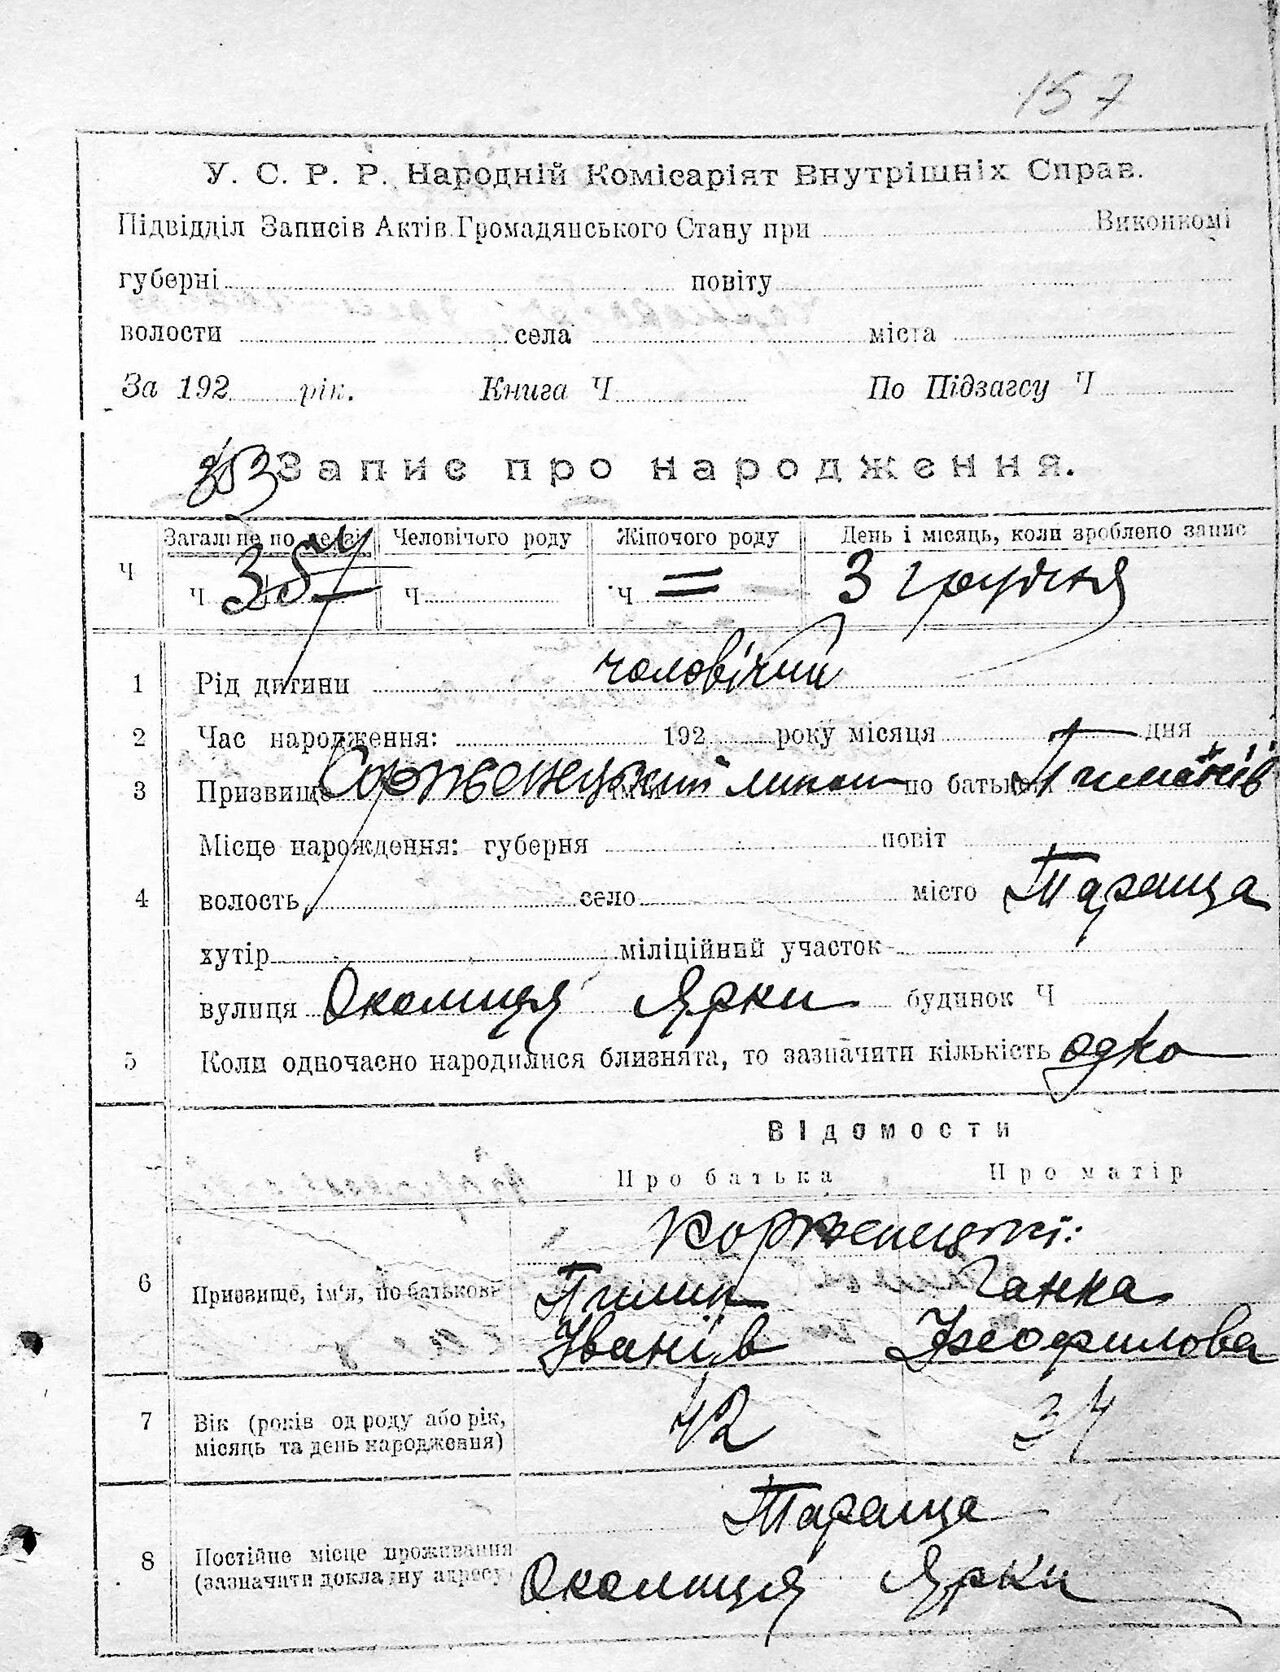 157
У. С. Р. Р. Народній Комісаріят Внутрішніх Справ.
Підвідділ Записів Актів Громадянського Стану при Виконкомі
губерні повіту
волости села міста
За 192 рік. Книга Ч По Підзагсу Ч
353 Запис про народження.
Загальне по Человічого роду Жіночого роду День і місяць, коли зроблено запис
Ч Ч 35 Ч Ч = 3 грудня
1 Рід дитини чоловічий
2 Час народження: 192 року місяця дня
3 Призвище Корженецький по батькові
Місце народження: губерня повіт
4 волость село місто Тараща
хутір міліційний участок
вулиця Околиця Ярки будинок Ч
5 Коли одночасно народилися близнята, то зазначити кількість одно
Відомости
Про батька Про матір
Корженецькі:
6 Призвище, ім'я, по батькове Пилип Ганка
Іванів Теофилова
7 Вік (років од роду або рік, 42 34
місяць та день народження)
Тараща
8 Постійне місце проживання
(зазначити докладну адресу) Околиця Ярки